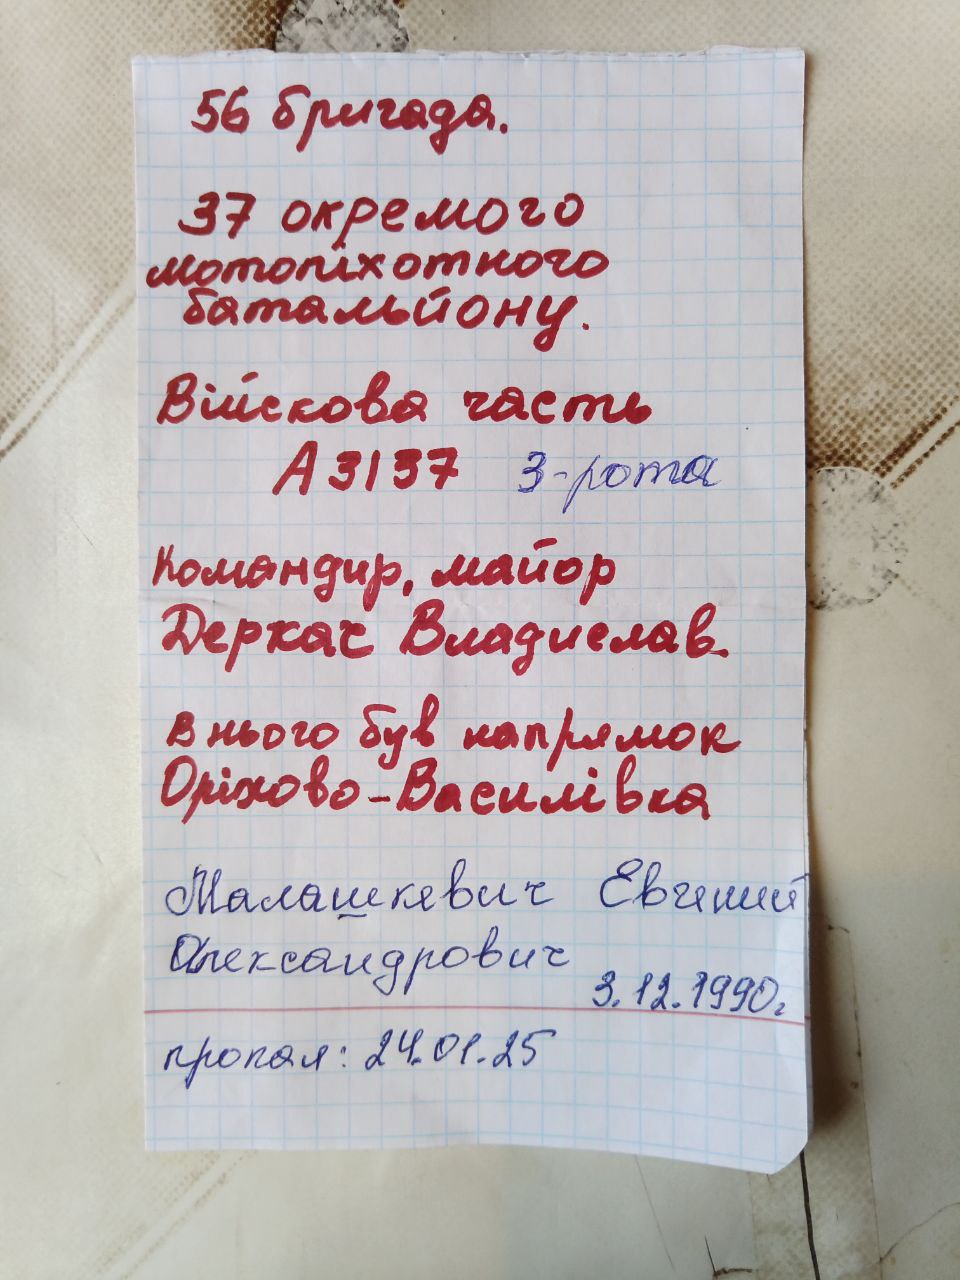 56 бригада.
37 окремого
мотопіхотного
батальйону.
Війскова часть
А3137 3-рота
Командир, майор
Деркач Владислав.
в нього був напрямок
Оріхово-Василівка
Малашкевич Евгений
Александрович
3.12.1990г
пропал: 24.01.25